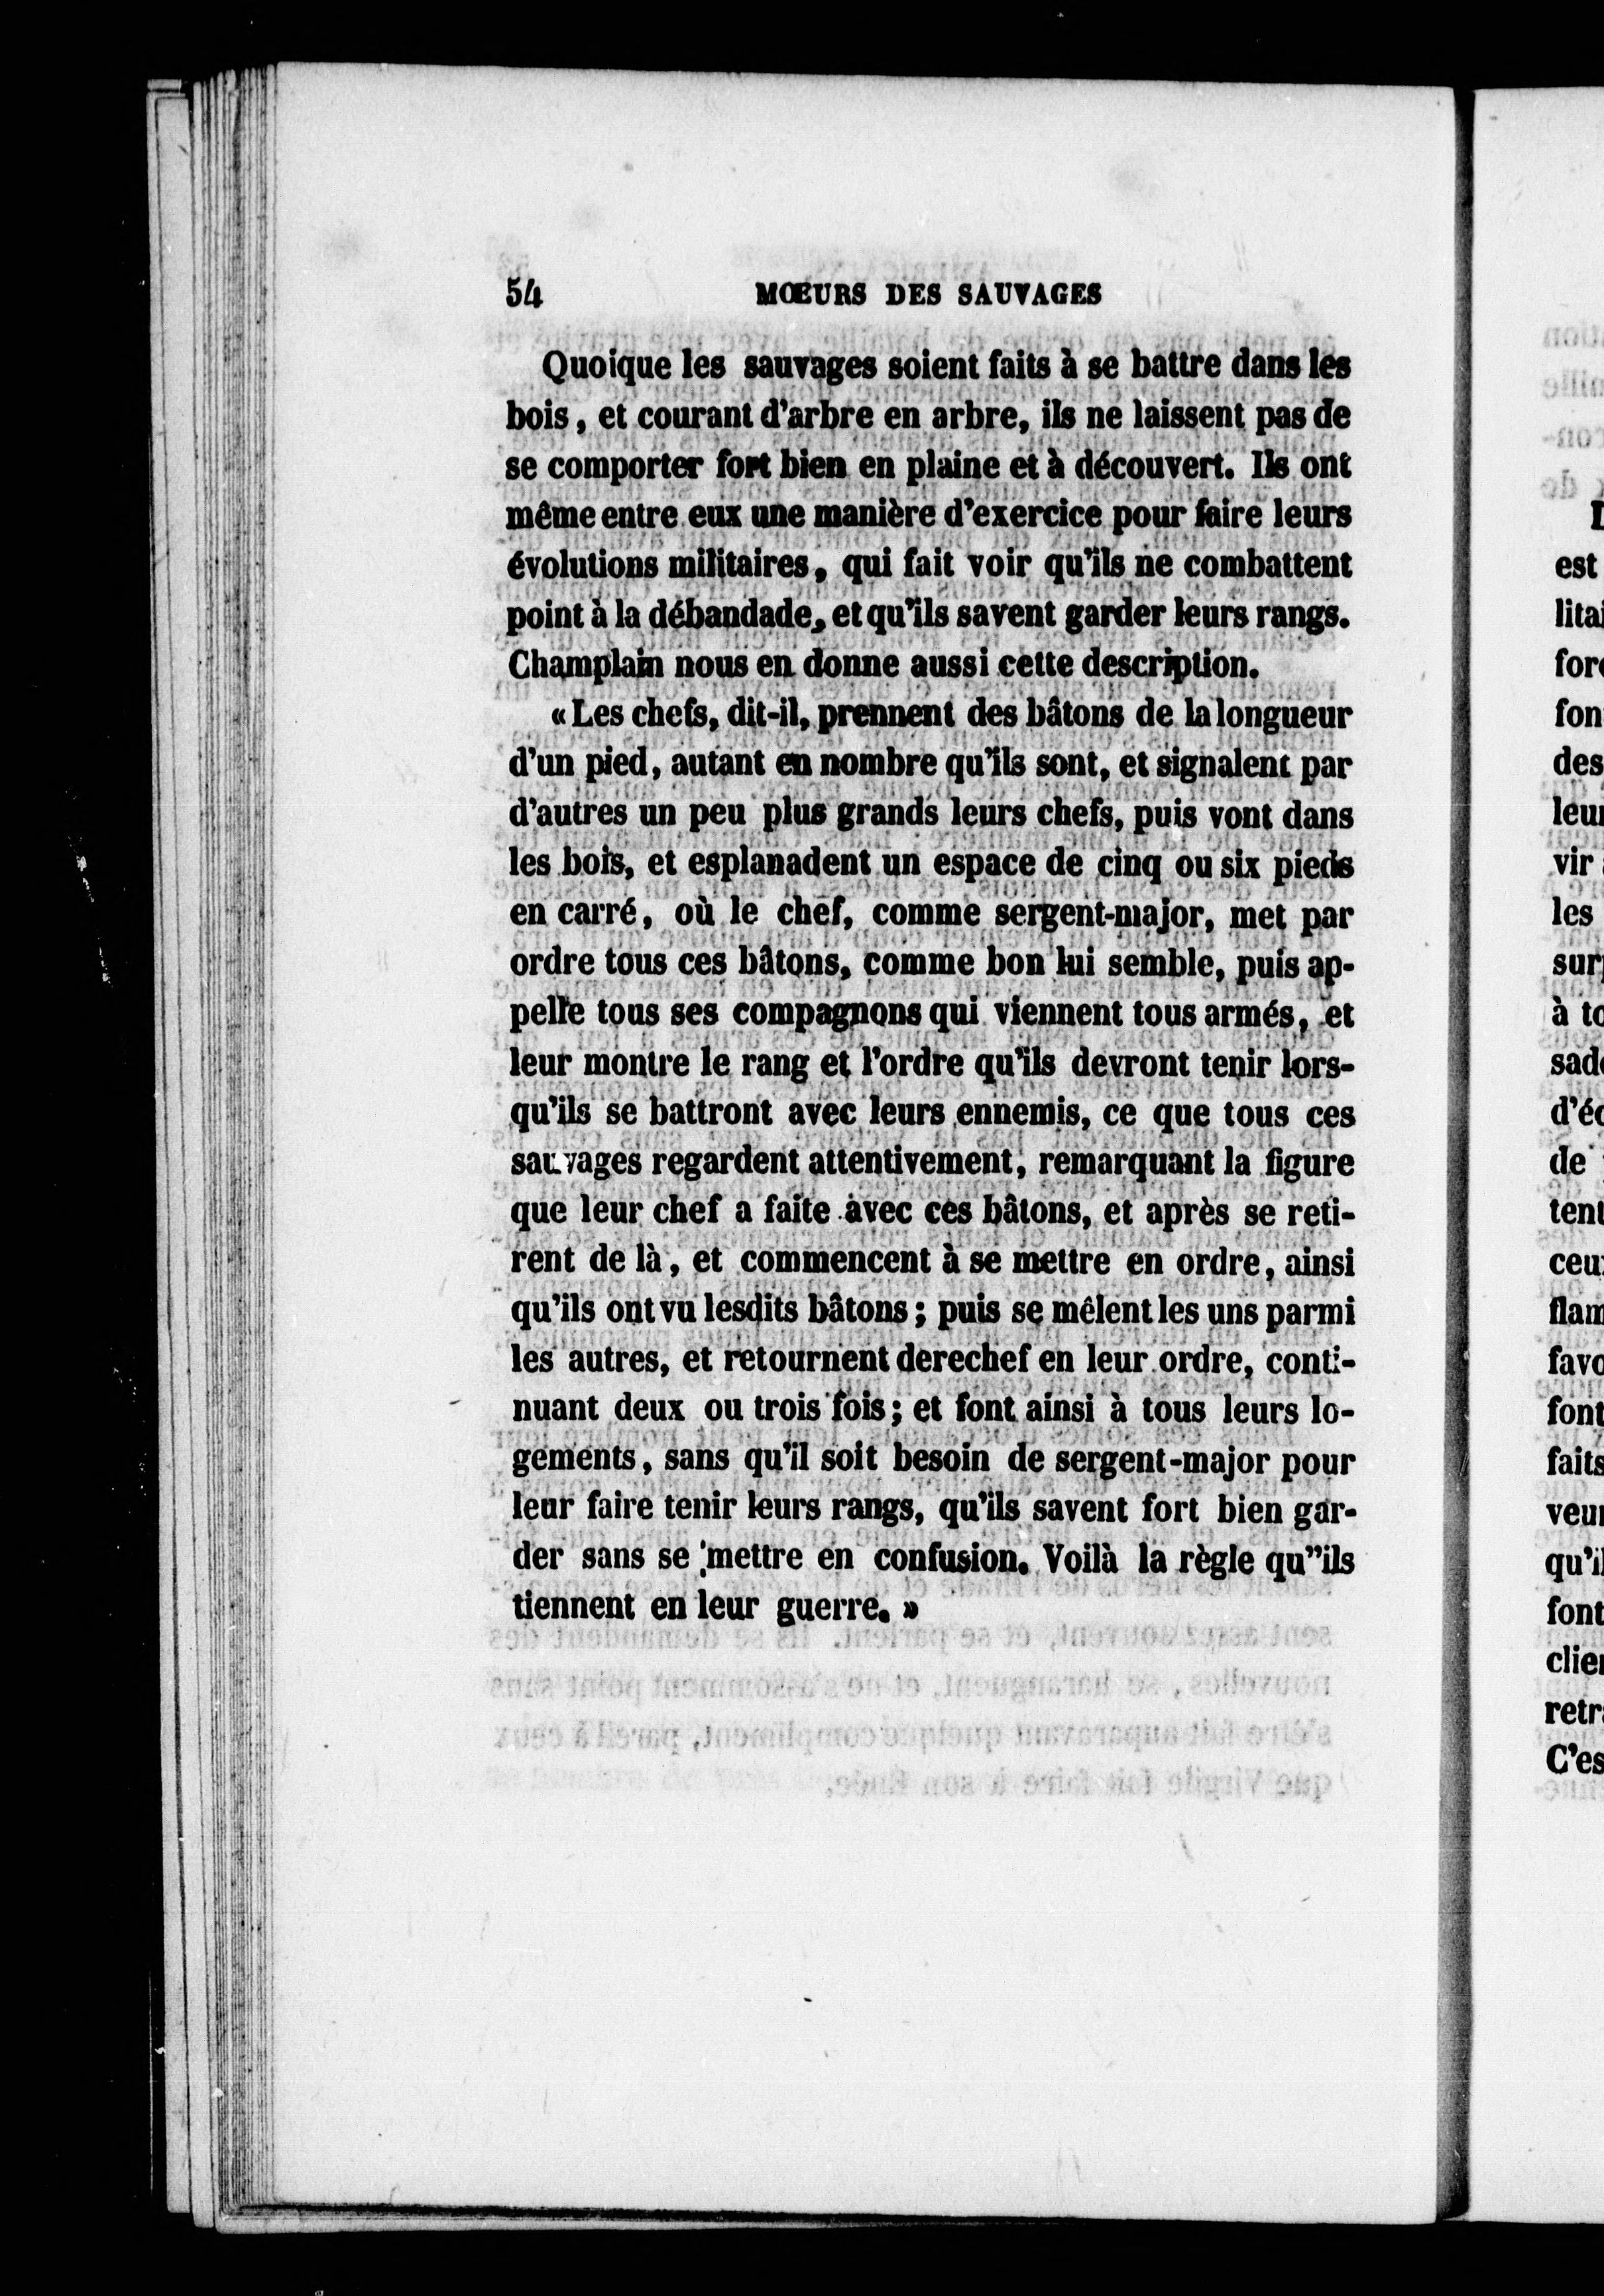 54 MŒURS DES SAUVAGES
Quoique les sauvages soient faits à se battre dans les
bois, et courant d'arbre en arbre, ils ne laissent pas de
se comporter fort bien en plaine et à découvert. Ils ont
même entre eux une manière d'exercice pour faire leurs
évolutions militaires, qui fait voir qu'ils ne combattent
point à la débandade, et qu'ils savent garder leurs rangs.
Champlain nous en donne aussi cette description.
« Les chefs, dit-il, prennent des bâtons de la longueur
d'un pied, autant en nombre qu'ils sont, et signalent par
d'autres un peu plus grands leurs chefs, puis vont dans
les bois, et esplanadent un espace de cinq ou six pieds
en carré, où le chef, comme sergent-major, met par
ordre tous ces bâtons, comme bon lui semble, puis ap-
pelle tous ses compagnons qui viennent tous armés, et
leur montre le rang et l'ordre qu'ils devront tenir lors-
qu'ils se battront avec leurs ennemis, ce que tous ces
sauvages regardent attentivement, remarquant la figure
que leur chef a faite avec ces bâtons, et après se reti-
rent de là, et commencent à se mettre en ordre, ainsi
qu'ils ont vu lesdits bâtons; puis se mêlent les uns parmi
les autres, et retournent derechef en leur ordre, conti-
nuant deux ou trois fois; et font ainsi à tous leurs lo-
gements, sans qu'il soit besoin de sergent-major pour
leur faire tenir leurs rangs, qu'ils savent fort bien gar-
der sans se mettre en confusion. Voilà la règle qu''ils
tiennent en leur guerre. »
est
des
les
de
font
faits
font